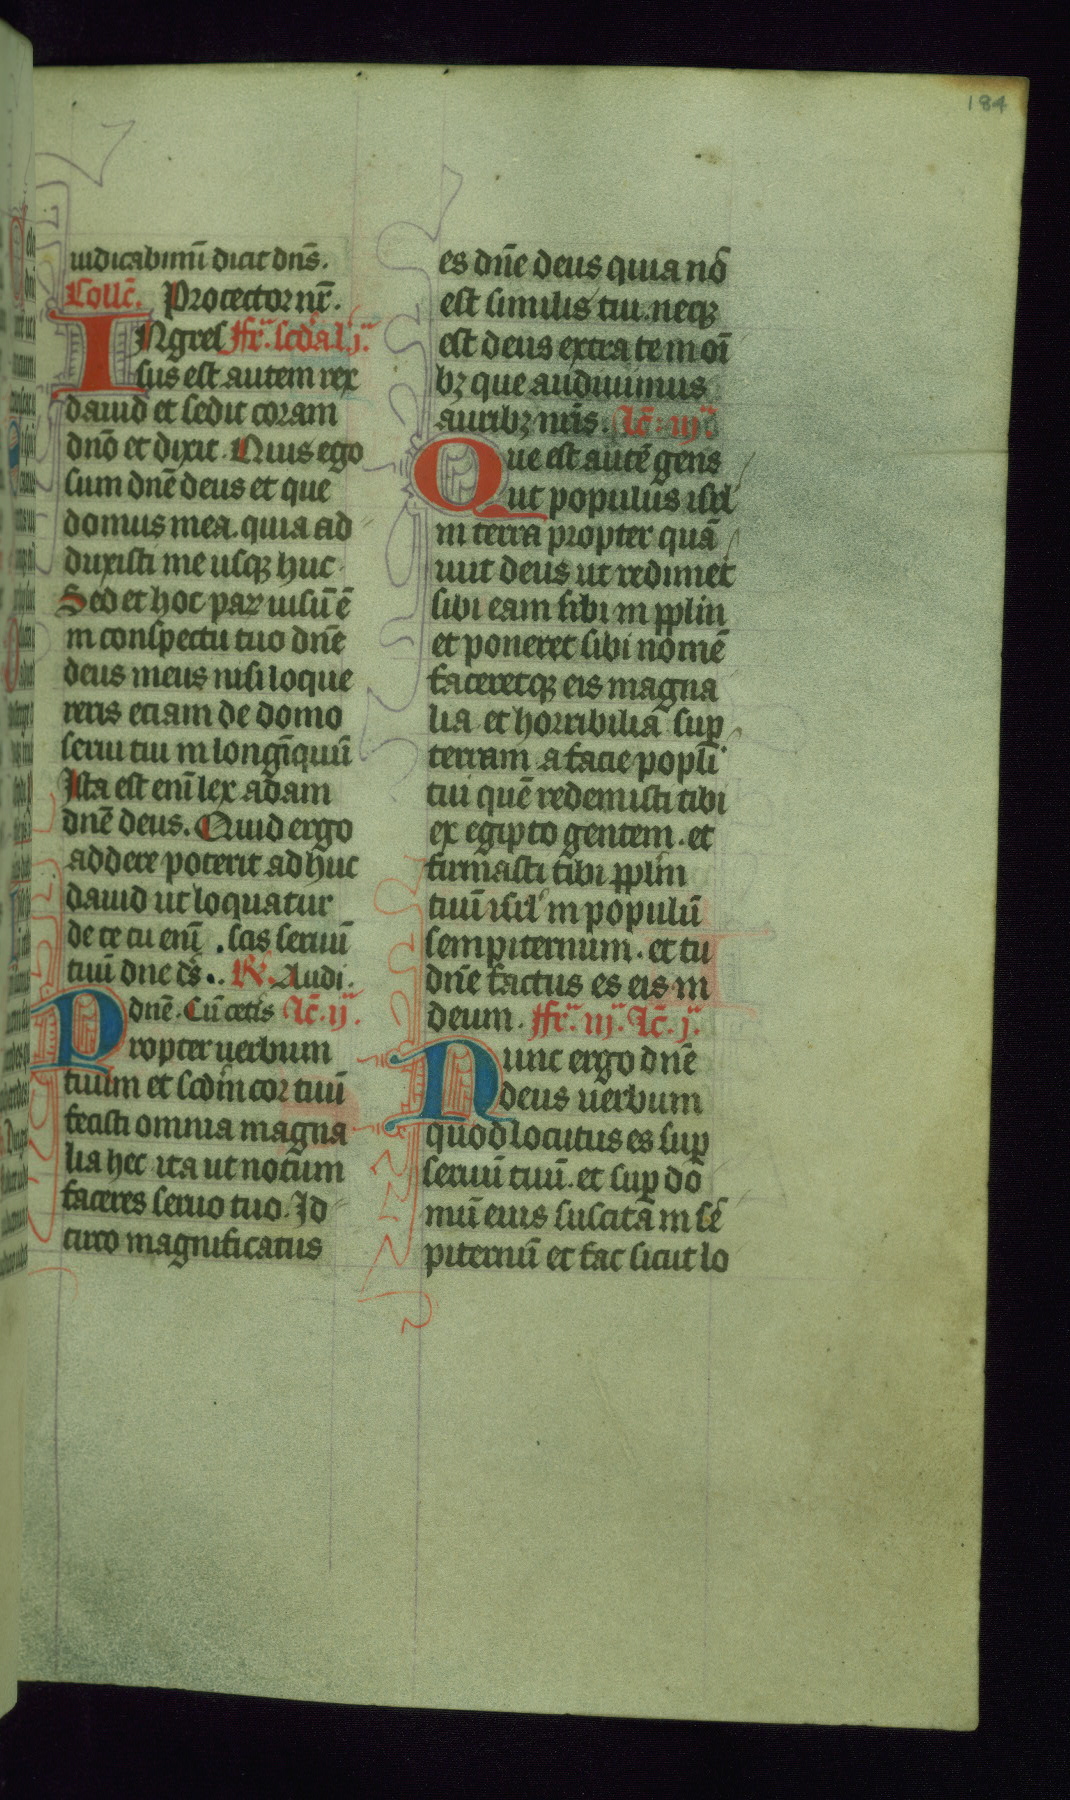 184
iudicabimi᷑ dicit dn̄s.
Coll̄c. Protector nr̄.
INgres ffr̄. scd̄a l. j.
sus est autem rex
dauid et sedit coram
dn̄o et dixit. Quis ego
sum dn̄e deus et que
domus mea. quia ad
duxisti me usqꝫ huc
Sed et hoc paꝝ uisū ē
in conspectu tuo dn̄e
deus meus nisi loque
reris eciam de domo
serui tui in longīquū
Ista est enī lex adam
dn̄e deus. Quid ergo
addere poterit adhuc
dauid ut loquatur
de te tu enī . scis seruū
tuū dne d̄s.. R̸. Audi.
dn̄e. Cū cetīs l̄c. ij.
Propter uerbum
tuum et scd̄m cor tuū
fecisti omnia magna
lia hec ita ut notum
faceres seruo tuo. Id
circo magnificatus
es dn̄e deus quia nō
est similis tui. neqꝫ
est deus extra te in oī
bꝫ que audiuimus
auribꝫ nr̄is. l̄c. iij.
Que est autē gens
ut populus isrl̄
in terra propter quā
iuit deus ut redimet
sibi eam sibi in pp̄lm
et poneret sibi nomē
faceretqꝫ eis magna
lia et horribilia suꝑ
terram a facie popl̄i
tui quē redemisti tibi
ex egipto gentem. et
firmasti tibi pp̄lm
tuū isrl̄ in populū
sempiternum. et tu
dn̄e factus es eis in
deum. ffr̄. iij. l̄c. j.
Nunc ergo dn̄e
deus uerbum
quod locutus es suꝑ
seruū tuū. et suꝑ do
mū eius suscita in sē
piternū et fac sicut lo